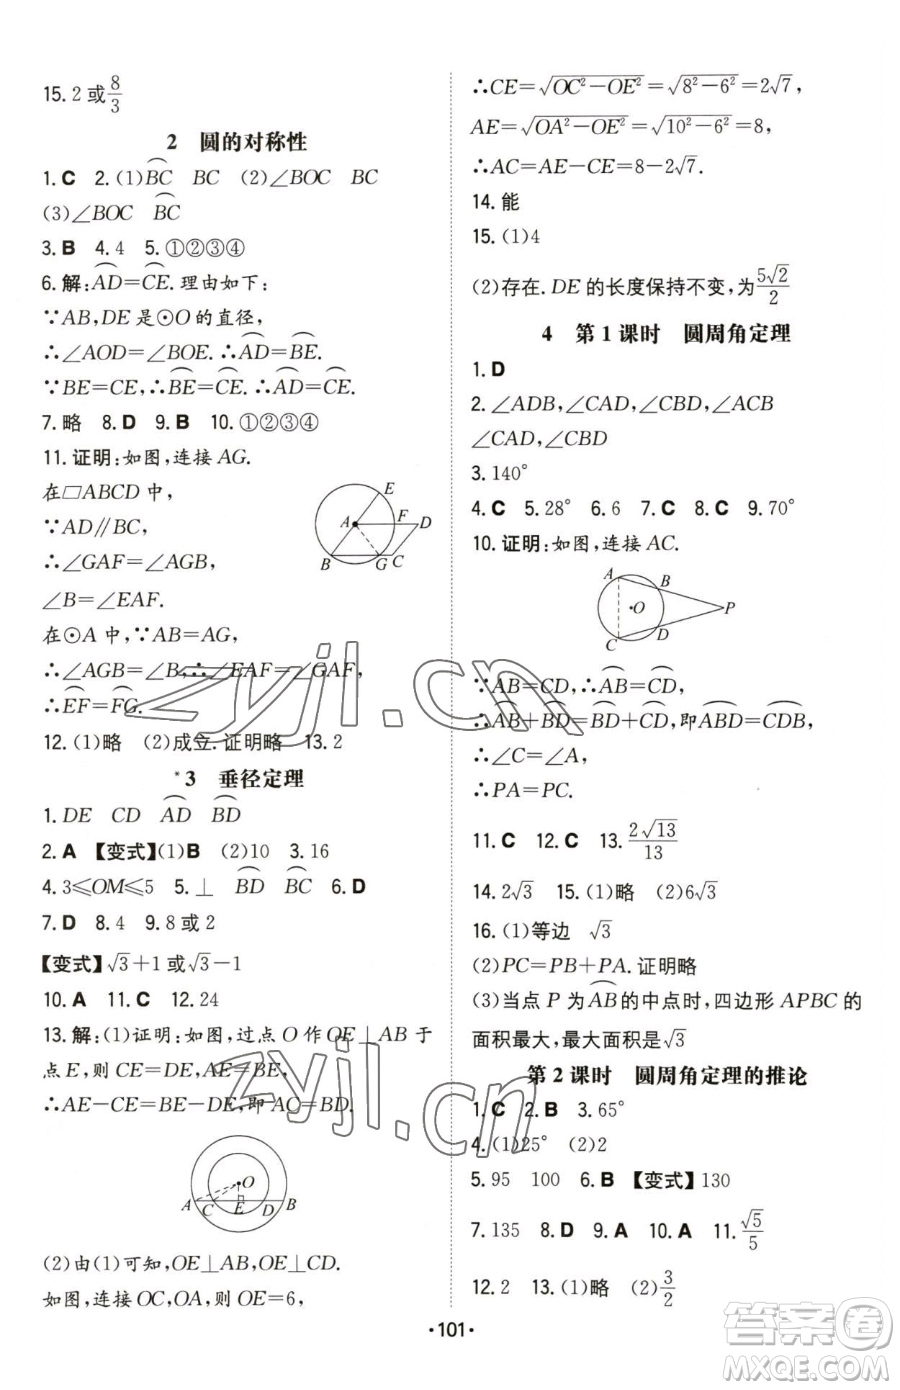 15. 2 或 8/3
2 圆的对称性
1. C 2. (1)⌒BC BC (2)∠BOC BC
(3)∠BOC ⌒BC
3. B 4. 4 5. ①②③④
6. 解:⌒AD=⌒CE. 理由如下:
∵AB,DE 是⊙O 的直径,
∴∠AOD=∠BOE. ∴⌒AD=⌒BE.
∵BE=CE,∴⌒BE=⌒CE. ∴⌒AD=⌒CE.
7. 略 8. D 9. B 10. ①②③④
11. 证明:如图,连接 AG.
在□ABCD 中,
∵AD∥BC,
∴∠GAF=∠AGB,
∠B=∠EAF.
在⊙A 中,∵AB=AG,
∴∠AGB=∠B,∴∠EAF=∠GAF,
∴⌒EF=⌒FG.
A B C D E F G
12. (1)略 (2)成立. 证明略 13. 2
*3 垂径定理
1. DE CD ⌒AD ⌒BD
2. A 【变式】(1)B (2)10 3. 16
4. 3≤OM≤5 5. ⊥ ⌒BD ⌒BC 6. D
7. D 8. 4 9. 8 或 2
【变式】√3+1 或√3-1
10. A 11. C 12. 24
13. 解:(1)证明:如图,过点 O 作 OE⊥AB 于
点 E,则 CE=DE,AE=BE,
∴AE-CE=BE-DE,即 AC=BD.
O A C E D B
(2)由(1)可知,OE⊥AB,OE⊥CD.
如图,连接 OC,OA,则 OE=6,
∴CE=√(OC²-OE²)=√(8²-6²)=2√7,
AE=√(OA²-OE²)=√(10²-6²)=8,
∴AC=AE-CE=8-2√7.
14. 能
15. (1)4
(2)存在. DE 的长度保持不变,为 5√2/2
4 第 1 课时 圆周角定理
1. D
2. ∠ADB,∠CAD,∠CBD,∠ACB
∠CAD,∠CBD
3. 140°
4. C 5. 28° 6. 6 7. C 8. C 9. 70°
10. 证明:如图,连接 AC.
A B O P C D
∵AB=CD,∴⌒AB=⌒CD,
∴⌒AB+⌒BD=⌒BD+⌒CD,即⌒ABD=⌒CDB,
∴∠C=∠A,
∴PA=PC.
11. C 12. C 13. 2√13/13
14. 2√3 15. (1)略 (2)6√3
16. (1)等边 √3
(2)PC=PB+PA. 证明略
(3)当点 P 为⌒AB的中点时,四边形 APBC 的
面积最大,最大面积是√3
第 2 课时 圆周角定理的推论
1. C 2. B 3. 65°
4. (1)25° (2)2
5. 95 100 6. B 【变式】130
7. 135 8. D 9. A 10. A 11. √5/5
12. 2 13. (1)略 (2)3/2
·101·
zyjl.cn
zyjl.cn
答案圈
MXQE.COM